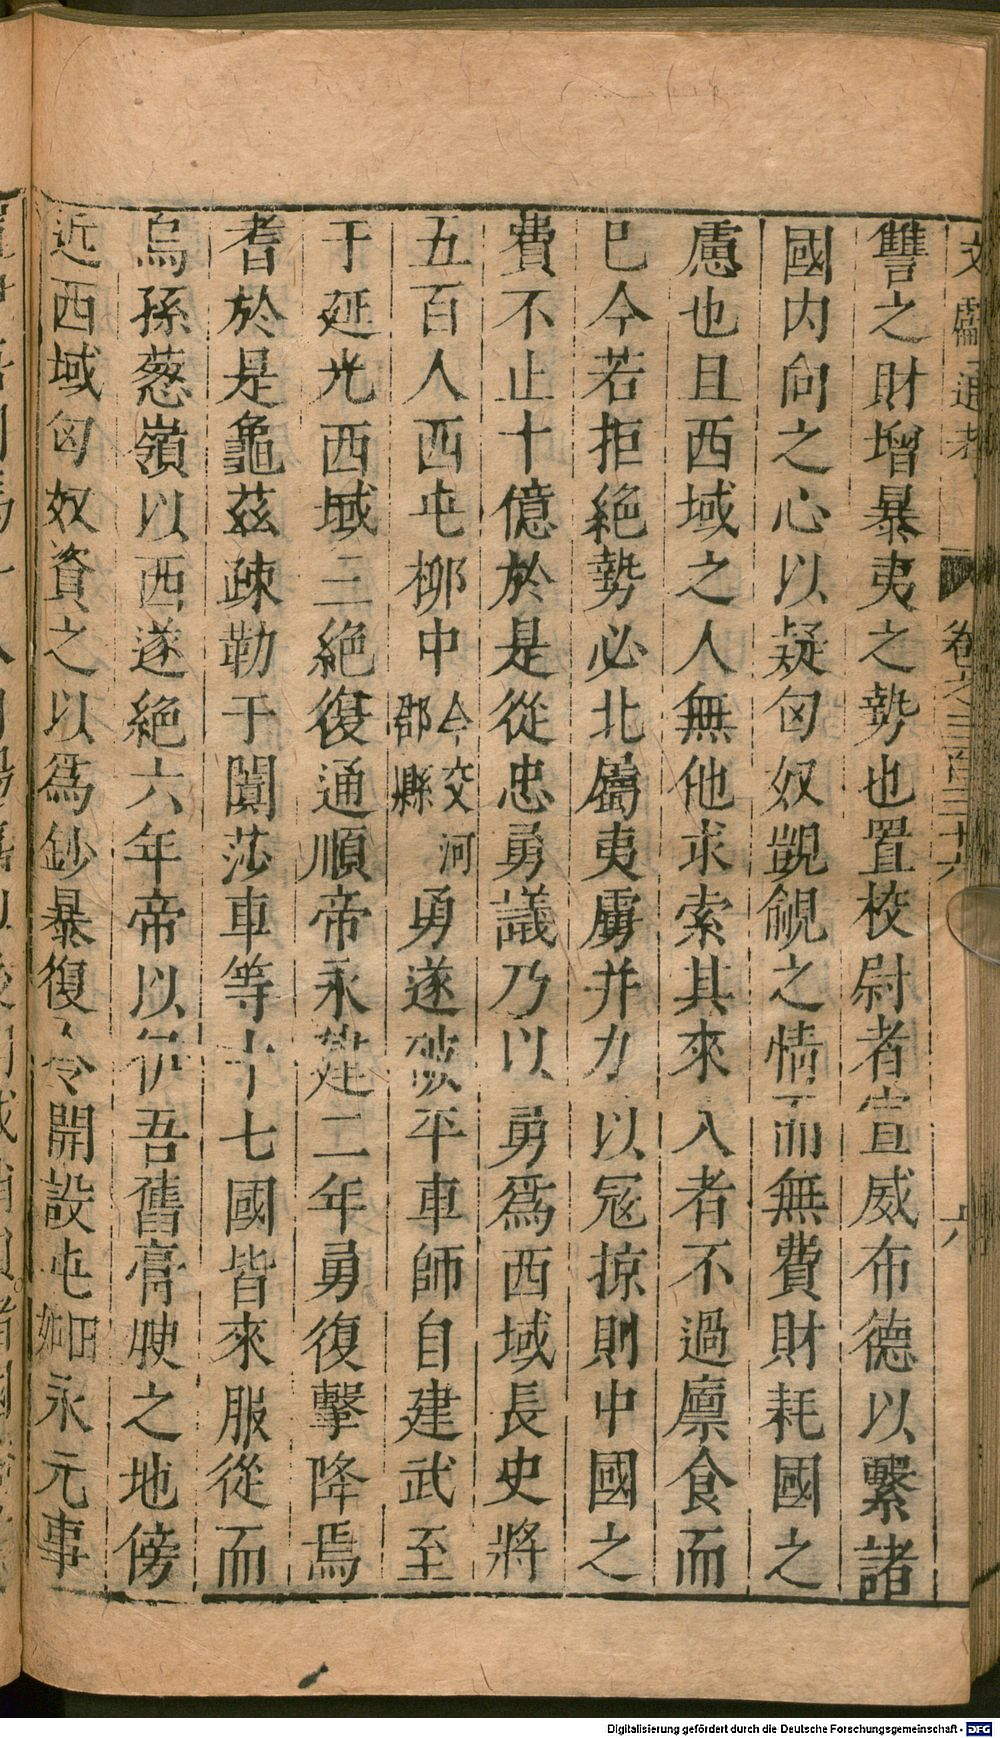 文獻通考 卷之三百三十六 六
讐之財增暴夷之勢也置校尉者宣威布德以繫諸
國内向之心以疑匈奴覬覦之情而無費財耗國之
慮也且西域之人無他求索其來入者不過廩食而
已今若拒絶勢必北屬夷虜并力以冦掠則中國之
費不止十億於是從忠勇議乃以勇爲西域長史將
五百人西屯柳中今交河郡縣勇遂破平車師自建武至
于延光西域三絶復通順帝永建二年勇復擊降焉
耆於是龜茲疎勒于闐莎車等十七國皆來服從而
烏孫葱嶺以西遂絶六年帝以伊吾舊膏腴之地傍
近西域匈奴資之以爲鈔暴復令開設屯田如永元事
Digitalisierung gefördert durch die Deutsche Forschungsgemeinschaft - DFG